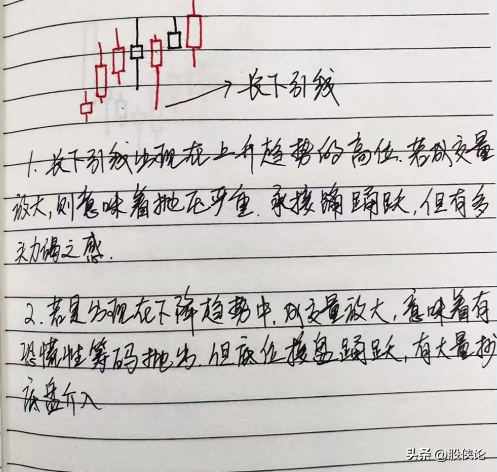 长下引线
1. 长下引线出现在上升趋势的高位.若成交量
放大,则意味着抛压严重.承接踊踊跃,但有多
头力竭之感.
2.若是出现在下降趋势中.成交量放大,意味着有
恐慌性筹码抛出.但底位接盘踊跃,有大量抄
底盘介入
头条@股侠论